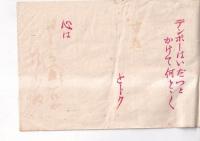 デンポーはいたつと
かけて何ととく
とトク
心は